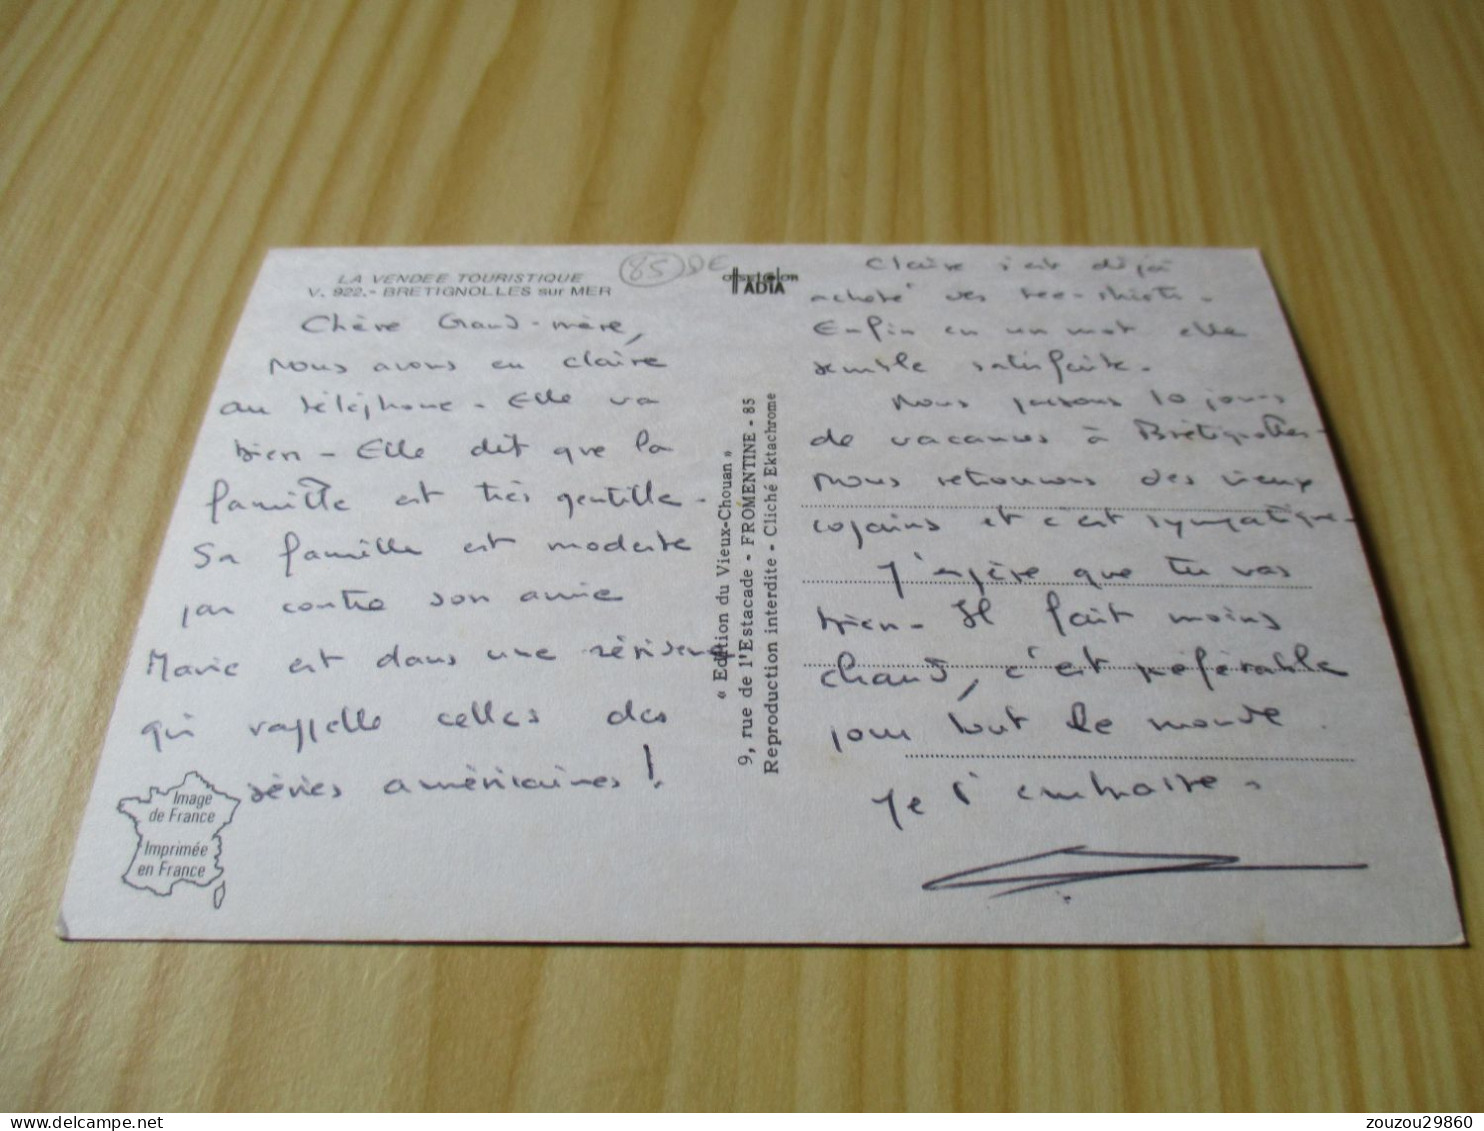 LA VENDEE TOURISTIQUE
V. 922.- BRETIGNOLLES sur MER
85
ADIA
Chère Grand-mère,
Nous avons eu Claire
au téléphone. Elle va
bien - Elle dit que la
famille est très gentille.
Sa famille est modeste
par contre son amie
Marie est dans une résidence
qui rappelle celles des
séries américaines !
Image
de France
Imprimée
en France
« Edition du Vieux-Chouan »
9, rue de l'Estacade - FROMENTINE - 85
Reproduction interdite - Cliché Ektachrome
Claire s'est déjà
acheté des tee-shirts.
Enfin en un mot elle
semble satisfaite.
Nous passons 10 jours
de vacances à Brétignolles.
Nous retrouvons des vieux
copains et c'est sympatique.
J'espère que tu vas
bien - Il fait moins
chaud, c'est préférable
pour tout le monde.
Je t'embrasse.
zouzou29860